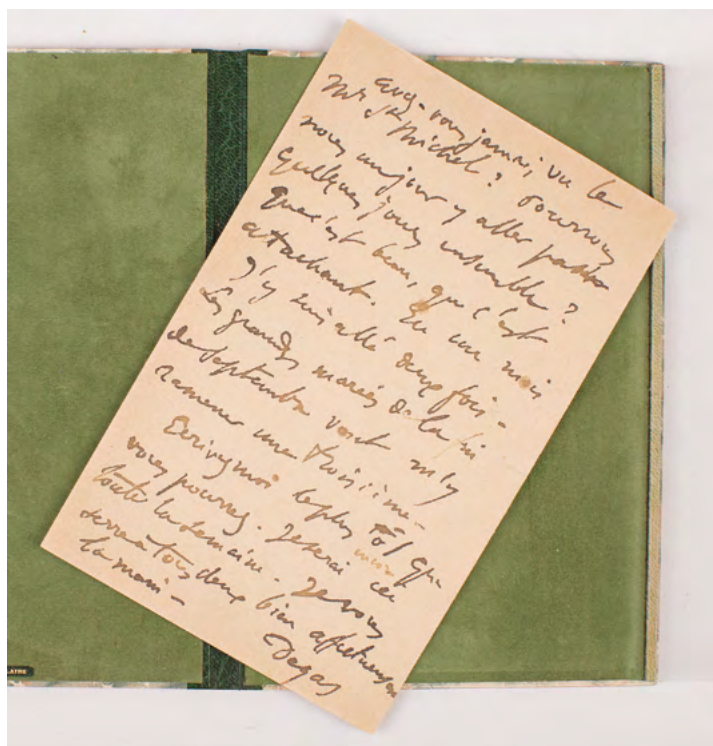 avez-vous jamais vu le
Mt St Michel? Pourrions
nous un jour y aller passer
quelques jours ensemble?
que c'est beau, que c'est
attachant. En un mois
j'y suis allé deux fois -
Les grandes marées de la fin
de septembre vont m'y
ramener une troisième -
Ecrivez moi le plus tôt que
vous pourrez. Je serai ici
toute la semaine. Je vous
serre à tous deux bien affectueusement
la main -
Degas